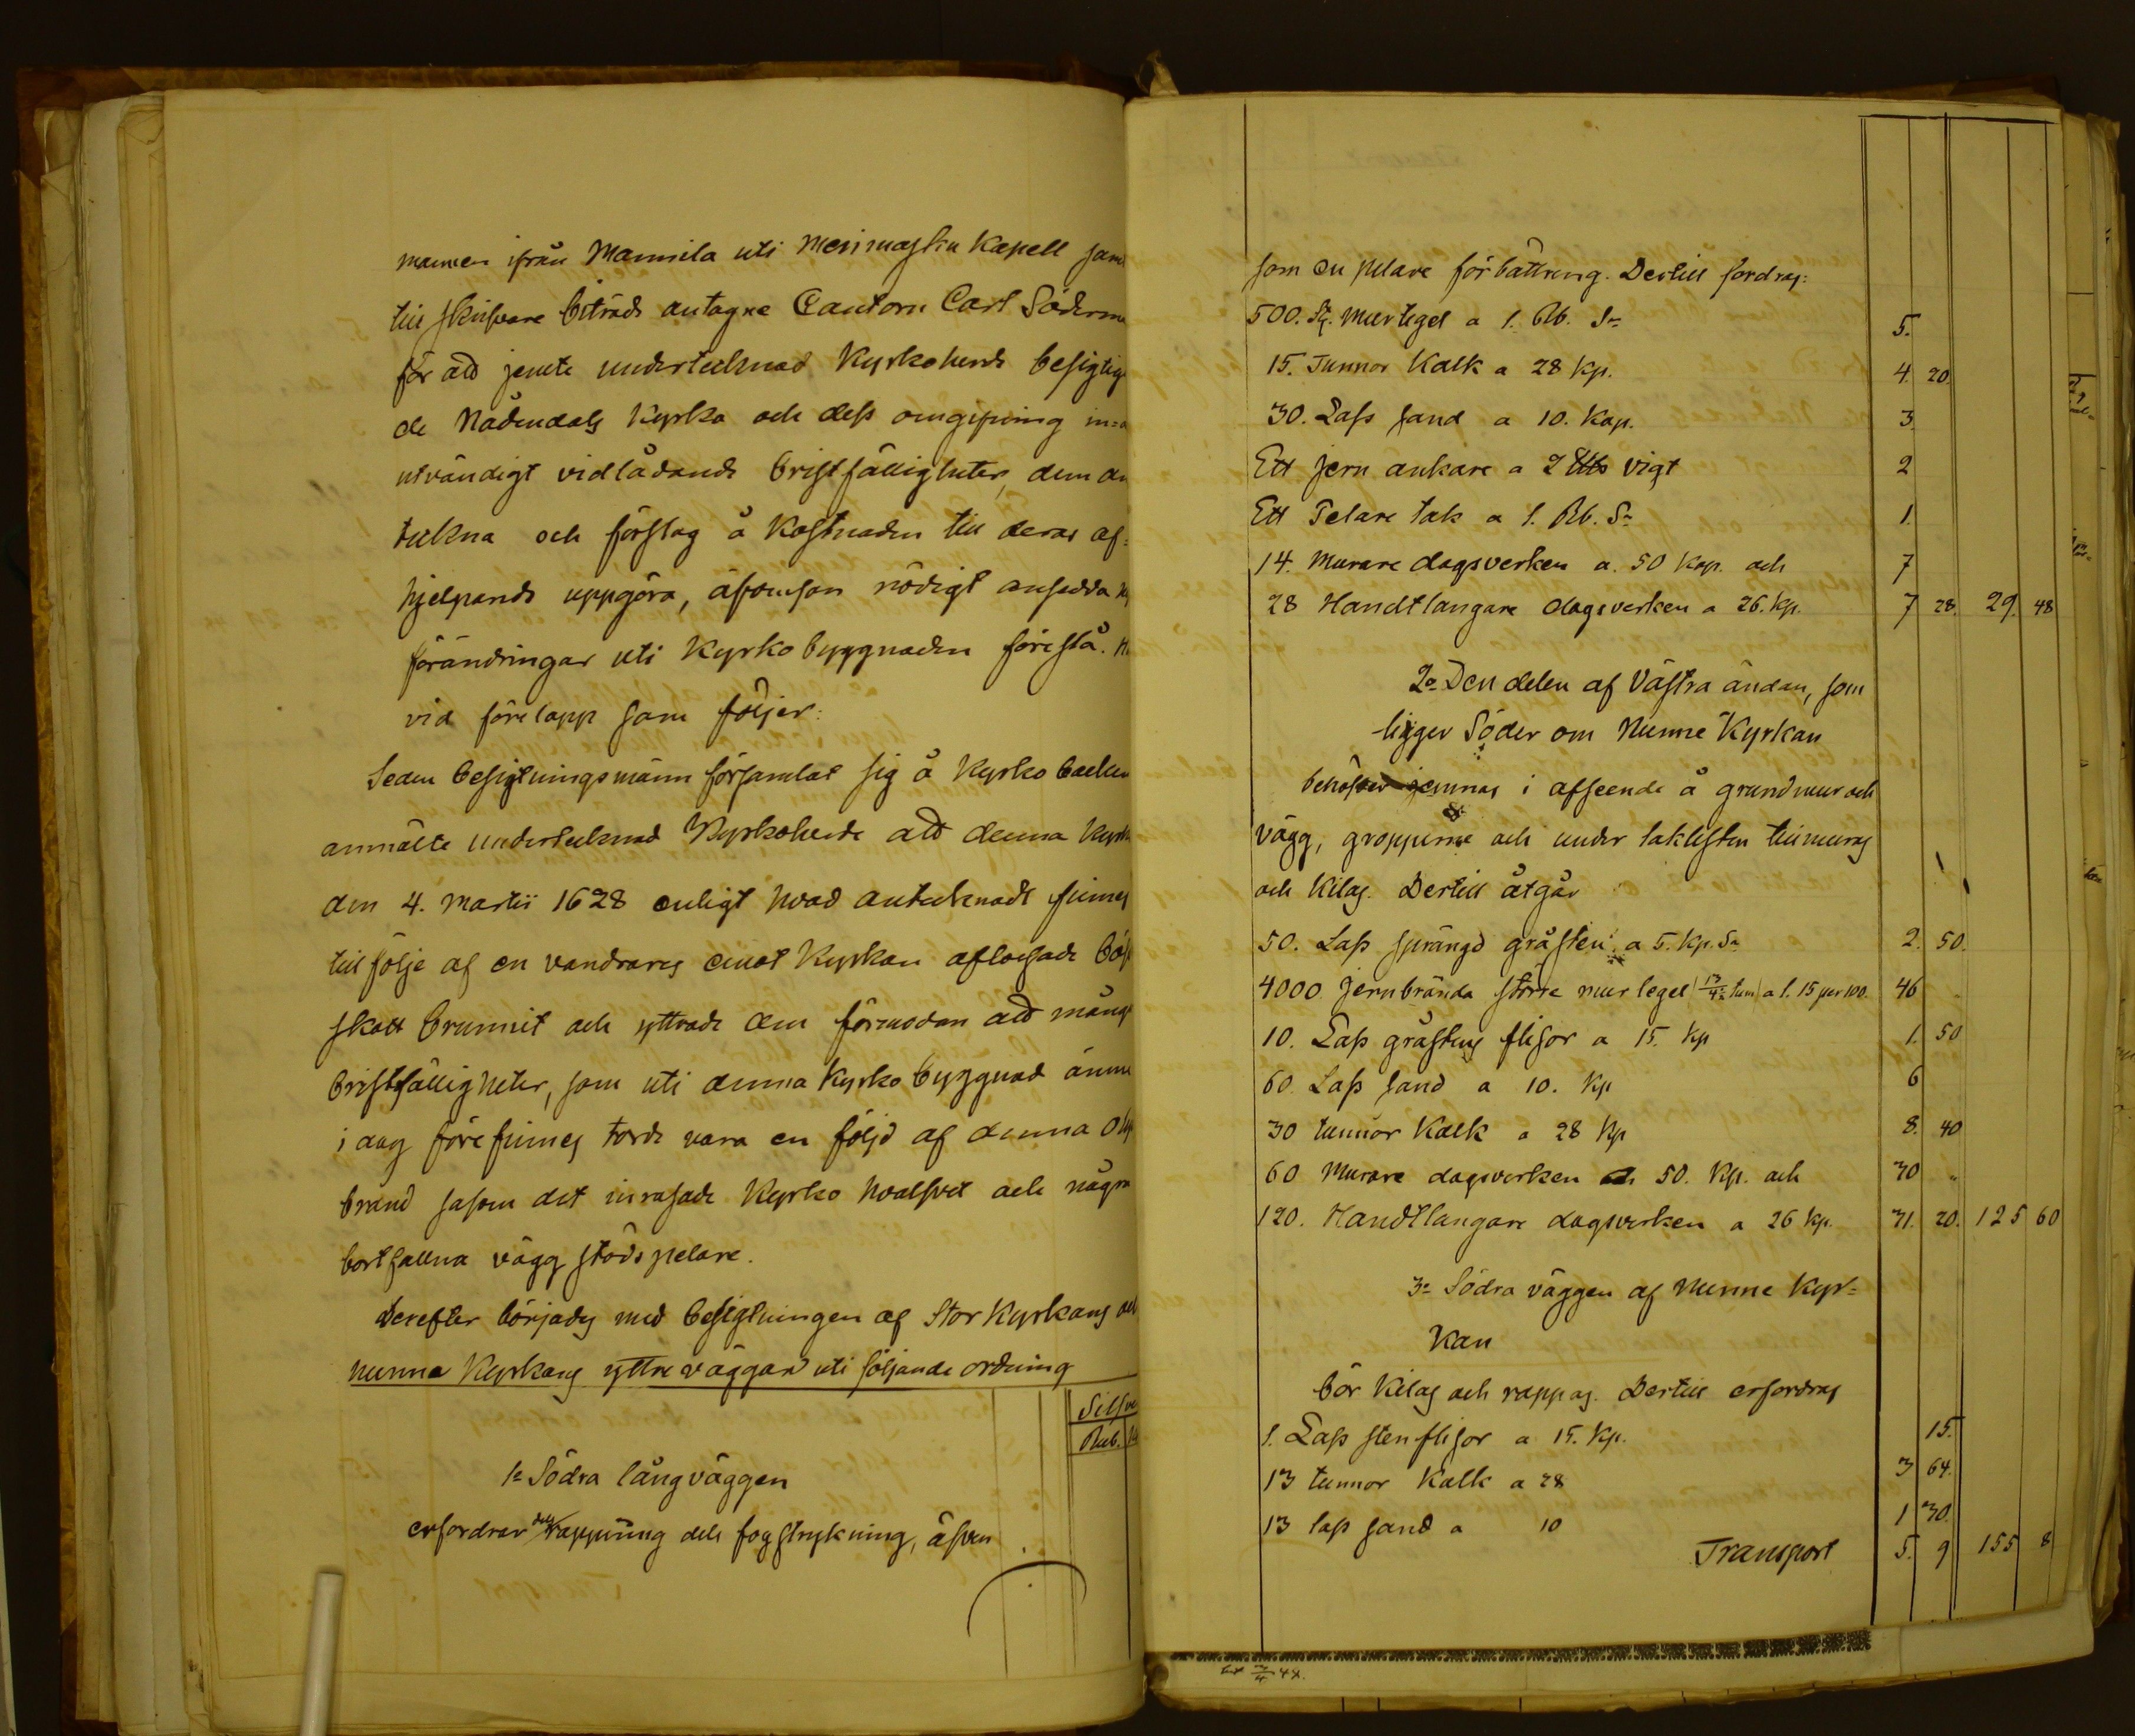 mannen ifrån Mannila uti Merimasku Kapell samt
till skrifvare biträde antagne Cantorn Carl Söderm
för att jemte undertecknad Kyrkoherde besigtig
de Nådendals Kyrka och dess omgifning in= o
utvändigt vidlådande bristfälligheter, dem an
tekna och förslag å kostnaden till deras af=
hjelpande uppgöra, äfvensom nödigt ansedda
förändringar uti Kyrkobyggnaden föreslå.
vid förelopp som följer:
Sedan besigtningsmänn församlat sig å Kyrko backen
anmälte undertecknad Kyrkoherde att denna Kyrk
den 4. Martii 1628 enligt hvad antecknadt finnes
till följe af en vandrares emot Kyrkan aflossade bös
skott brunnit och yttrade den förmodan att mång
bristfälligheter, som uti denna Kyrko byggnad änn
i dag förefinnes torde vara en följd af denna olyc
brand såsom det inrasade Kyrko hvalfvet och några
bortfallna vägg stöds pelare.
Derefter börjades med besigtningen af Stor Kyrkans och
Nunne Kyrkans yttre väggar uti följande ordning
Silfve
Rub.
1o Södra långväggen
erfordrar dels rappning dels fogstrykning, äfven
som en pelare förbättring. Dertill fordras:
500. St. Murtegel a 1. Rb. Sr 5.
15. Tunnor Kalk a 28 Kp. 4. 20.
30. Lass sand a 10. Kop. 3
Ett jern ankare a 2 vigt 2
Ett Pelare tak a 1. Rb. Sr 1.
14. Murare dagsverken a. 50 Kop. och 7
28 Handtlangare dagsverken a 26. Kp. 7 28. 29. 48
2o Den delen af Västra ändan, som
ligger Söder om Nunne Kyrkan
behöfver jemnas i afseende å grundmur och
vägg, gropperne och under taklisten tillmuras
och kilas. Dertill åtgår
50. Lass sprängd gråsten a 5. Kp. Sr 2. 50.
4000 jernbrända större mur tegel a 1. 15 per 100. 46
10. Lass gråstens flisor a 15. Kp 1. 50
60. Lass sand a 10. Kp 6
30 tunnor Kalk a 28 Kp 8. 40
60 Murare dagsverken a 50. Kp. och 30 "
120. Handtlangare dagsverken a 26 Kp. 31. 20. 125 60
3o Södra väggen af Nunne Kyr=
kan
bör kilas och rappas. Dertill erfordras
1. Lass stenflisor a 15. Kp. 15.
13 tunnor Kalk a 28 3 64.
13 lass sand a 10 1 30.
Transport 5. 9 155 8